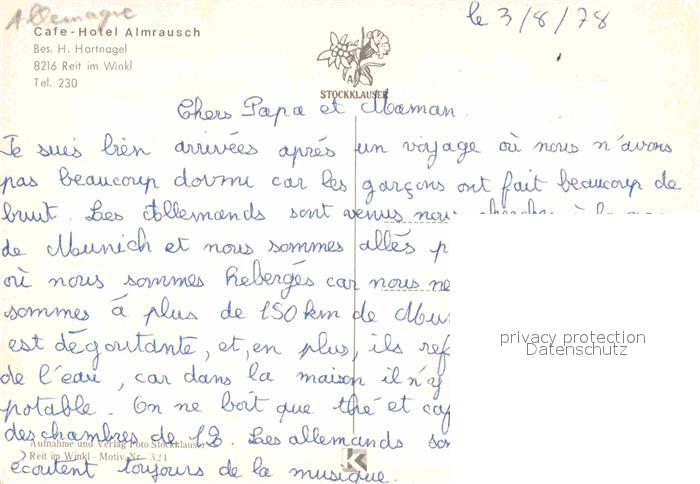 Allemagne
Cafe-Hotel Almrausch
Bes. H. Hartnagel
8216 Reit im Winkl
Tel. 230
le 3/8/78
A
STOCKLAUSER
Chers Papa et Maman.
Je suis bien arrivées après un voyage où nous n'avons
pas beaucoup dormi car les garçons ont fait beaucoup de
bruit. Les Allemands sont venus nous chercher à la gare
de Munich et nous sommes allés p
où nous sommes hebergés car nous ne
sommes à plus de 150 km de Mun
est dégoutante, et, en plus, ils ref
de l'eau, car dans la maison il n'y
potable. On ne boit que thé et caf
des chambres de 12. Les allemands so
écoutent toujours de la musique.
Aufnahme und Verlag Foto Stocklauser
Reit im Winkl - Motiv Nr. 321
K
privacy protection
Datenschutz